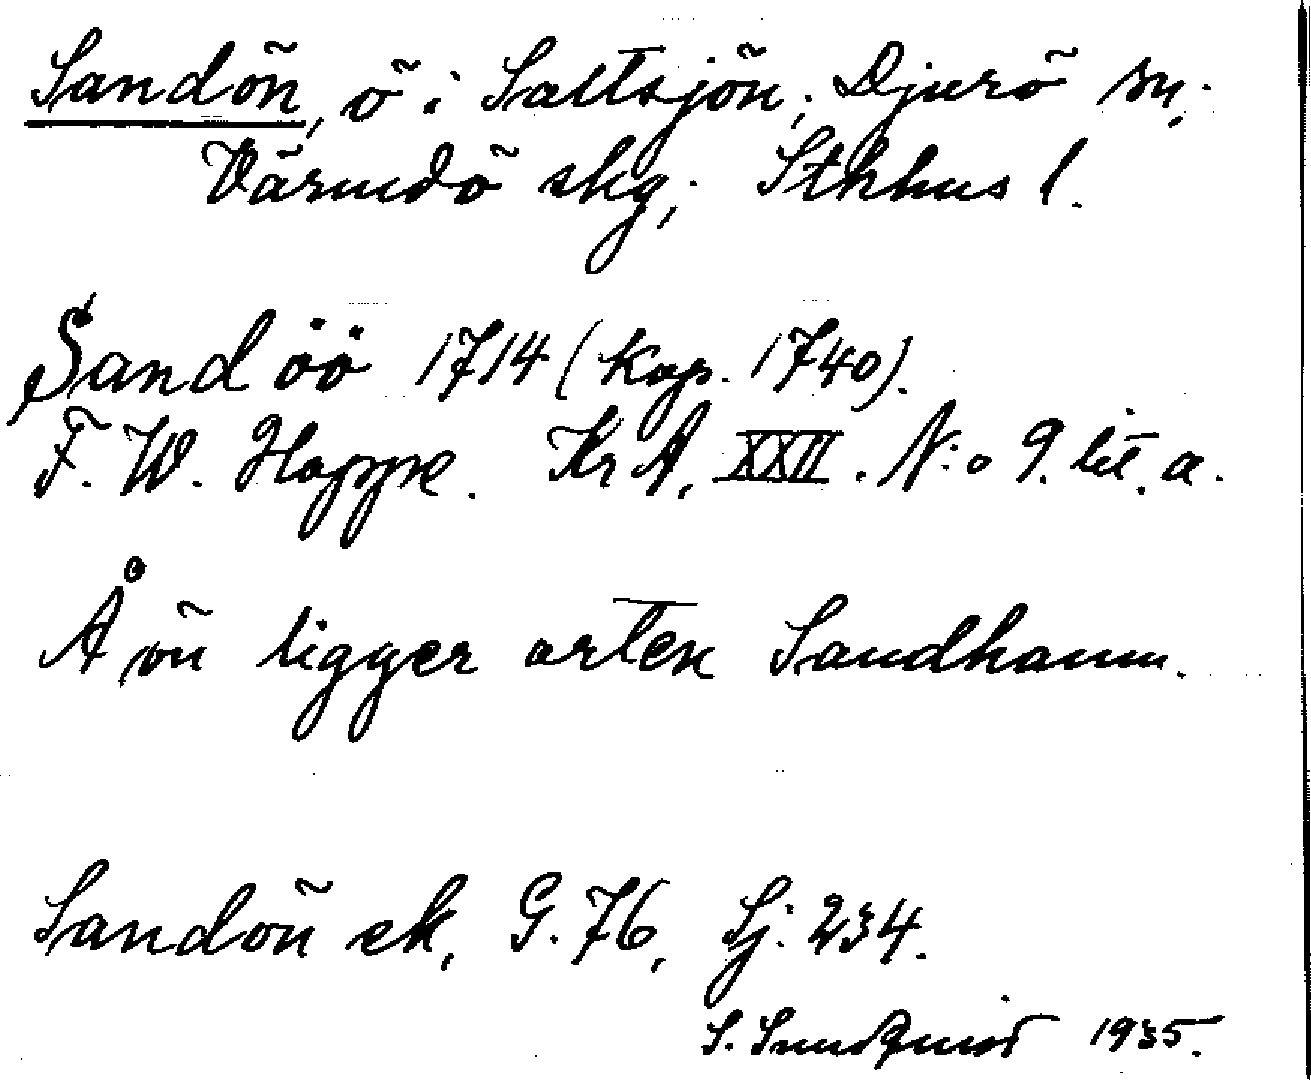 Sandön, ö i Saltsjön; Djurö sn;
Värmdö skg; Sthhus l.
Sandöö 1714 (kop. 1740).
F. W. Hoppe. KrA, XXII. N:o 9. lit. a.
Å ön ligger orten Sandhamn.
Sandön ek, G. 76, Sj: 234.
S. Sundquist 1935.